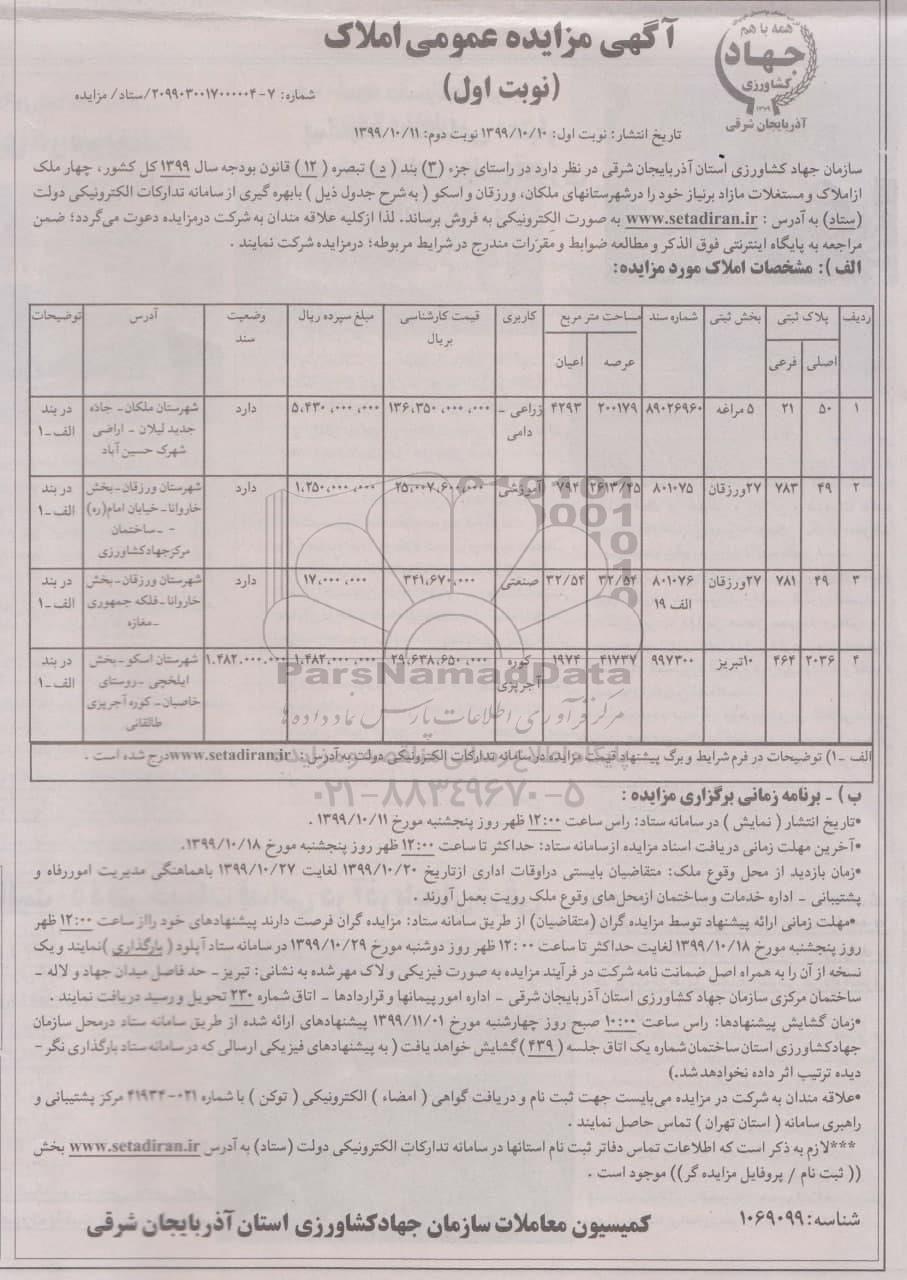 همه با هم
جهاد
کشاورزی
آذربایجان شرقی
آگهی مزایده عمومی املاک
(نوبت اول)
شماره: ۷-۲۰۹۹۰۳۰۰۱۷۰۰۰۰۰۴/ستاد/ مزایده
تاریخ انتشار: نوبت اول: ۱۳۹۹/۱۰/۱۰ نوبت دوم: ۱۳۹۹/۱۰/۱۱
سازمان جهاد کشاورزی استان آذربایجان شرقی در نظر دارد در راستای جزء (۳) بند (د) تبصره (۱۲) قانون بودجه سال ۱۳۹۹ کل کشور، چهار ملک
ازاملاک و مستغلات مازاد برنیاز خود را درشهرستانهای ملکان، ورزقان و اسکو ( به شرح جدول ذیل ) بابهره گیری از سامانه تدارکات الکترونیکی دولت
(ستاد) به آدرس : www.setadiran.ir به صورت الکترونیکی به فروش برساند. لذا ازکلیه علاقه مندان به شرکت درمزایده دعوت می‌گردد؛ ضمن
مراجعه به پایگاه اینترنتی فوق الذکر و مطالعه ضوابط و مقررات مندرج در شرایط مربوطه؛ درمزایده شرکت نمایند .
الف ): مشخصات املاک مورد مزایده:
ردیف پلاک ثبتی بخش ثبتی شماره سند مساحت متر مربع کاربری قیمت کارشناسی بریال مبلغ سپرده ریال وضعیت سند آدرس توضیحات
اصلی فرعی عرصه اعیان
۱ ۵۰ ۲۱ ۵ مراغه ۸۹۰۲۶۹۶۰ ۲۰۰۱۷۹ ۴۲۹۳ زراعی - دامی ۱۳۶،۳۵۰،۰۰۰،۰۰۰ ۵،۴۳۰،۰۰۰،۰۰۰ دارد شهرستان ملکان- جاده جدید لیلان - اراضی شهرک حسین آباد در بند الف -۱
۲ ۴۹ ۷۸۳ ۲۷ورزقان ۸۰۱۰۷۵ ۲۶۱۳/۴۵ ۷۹۴ آموزشی ۲۵،۰۰۷،۶۰۰،۰۰۰ ۱،۲۵۰،۰۰۰،۰۰۰ دارد شهرستان ورزقان-بخش خاروانا-خیابان امام(ره) - -ساختمان مرکزجهادکشاورزی در بند الف -۱
۳ ۴۹ ۷۸۱ ۲۷ورزقان ۸۰۱۰۷۶ الف ۱۹ ۳۲/۵۴ ۳۲/۵۴ صنعتی ۳۴۱،۶۷۰،۰۰۰ ۱۷،۰۰۰،۰۰۰ دارد شهرستان ورزقان-بخش خاروانا-فلکه جمهوری -مغازه در بند الف -۱
۴ ۲۰۳۶ ۴۶۴ ۱۰تبریز ۹۹۷۳۰۰ ۴۱۷۳۷ ۱۹۷۴ کوره آجرپزی ۲۹،۶۳۸،۶۵۰،۰۰۰ ۱،۴۸۲،۰۰۰،۰۰۰ ۱.۴۸۲.۰۰۰.۰۰۰ شهرستان اسکو -بخش ایلخچی -روستای خاصبان- کوره آجرپزی طالقانی در بند الف -۱
ParsNamadData
مرکز فرآوری اطلاعات پارس نماد داده ها
الف -۱) توضیحات در فرم شرایط و برگ پیشنهاد قیمت مزایده در سامانه تدارکات الکترونیکی دولت به آدرس : www.setadiran.ir درج شده است .
۰۲۱-۸۸۳۴۹۶۷۰-۵
ب ) - برنامه زمانی برگزاری مزایده :
•تاریخ انتشار ( نمایش ) در سامانه ستاد: راس ساعت ۱۲:۰۰ ظهر روز پنجشنبه مورخ ۱۳۹۹/۱۰/۱۱ .
•آخرین مهلت زمانی دریافت اسناد مزایده ازسامانه ستاد: حداکثر تا ساعت ۱۲:۰۰ ظهر روز پنجشنبه مورخ ۱۳۹۹/۱۰/۱۸.
•زمان بازدید از محل وقوع ملک: متقاضیان بایستی دراوقات اداری ازتاریخ ۱۳۹۹/۱۰/۲۰ لغایت ۱۳۹۹/۱۰/۲۷ باهماهنگی مدیریت اموررفاه و
پشتیبانی - اداره خدمات و ساختمان ازمحل‌های وقوع ملک رویت بعمل آورند .
•مهلت زمانی ارائه پیشنهاد توسط مزایده گران (متقاضیان) از طریق سامانه ستاد: مزایده گران فرصت دارند پیشنهادهای خود رااز ساعت ۱۲:۰۰ ظهر
روز پنجشنبه مورخ ۱۳۹۹/۱۰/۱۸ لغایت حداکثر تا ساعت ۱۲:۰۰ ظهر روز دوشنبه مورخ ۱۳۹۹/۱۰/۲۹ در سامانه ستاد آپلود ( بارگذاری )نمایند و یک
نسخه از آن را به همراه اصل ضمانت نامه شرکت در فرآیند مزایده به صورت فیزیکی و لاک مهر شده به نشانی: تبریز - حد فاصل میدان جهاد و لاله -
ساختمان مرکزی سازمان جهاد کشاورزی استان آذربایجان شرقی - اداره امور پیمانها و قراردادها - اتاق شماره ۲۳۰ تحویل و رسید دریافت نمایند .
•زمان گشایش پیشنهادها: راس ساعت ۱۰:۰۰ صبح روز چهارشنبه مورخ ۱۳۹۹/۱۱/۰۱ پیشنهادهای ارائه شده از طریق سامانه ستاد درمحل سازمان
جهادکشاورزی استان ساختمان شماره یک اتاق جلسه (۴۳۹) گشایش خواهد یافت ( به پیشنهادهای فیزیکی ارسالی که در سامانه ستاد بارگذاری نگر -
دیده ترتیب اثر داده نخوادهد شد.)
•علاقه مندان به شرکت در مزایده می‌بایست جهت ثبت نام و دریافت گواهی ( امضاء ) الکترونیکی ( توکن ) با شماره ۰۲۱-۴۱۹۳۴ مرکز پشتیبانی و
راهبری سامانه ( استان تهران ) تماس حاصل نمایند .
***لازم به ذکر است که اطلاعات تماس دفاتر ثبت نام استانها در سامانه تدارکات الکترونیکی دولت (ستاد) به آدرس www.setadiran.ir بخش
(( ثبت نام / پروفایل مزایده گر)) موجود است .
شناسه: ۱۰۶۹۰۹۹
کمیسیون معاملات سازمان جهادکشاورزی استان آذربایجان شرقی